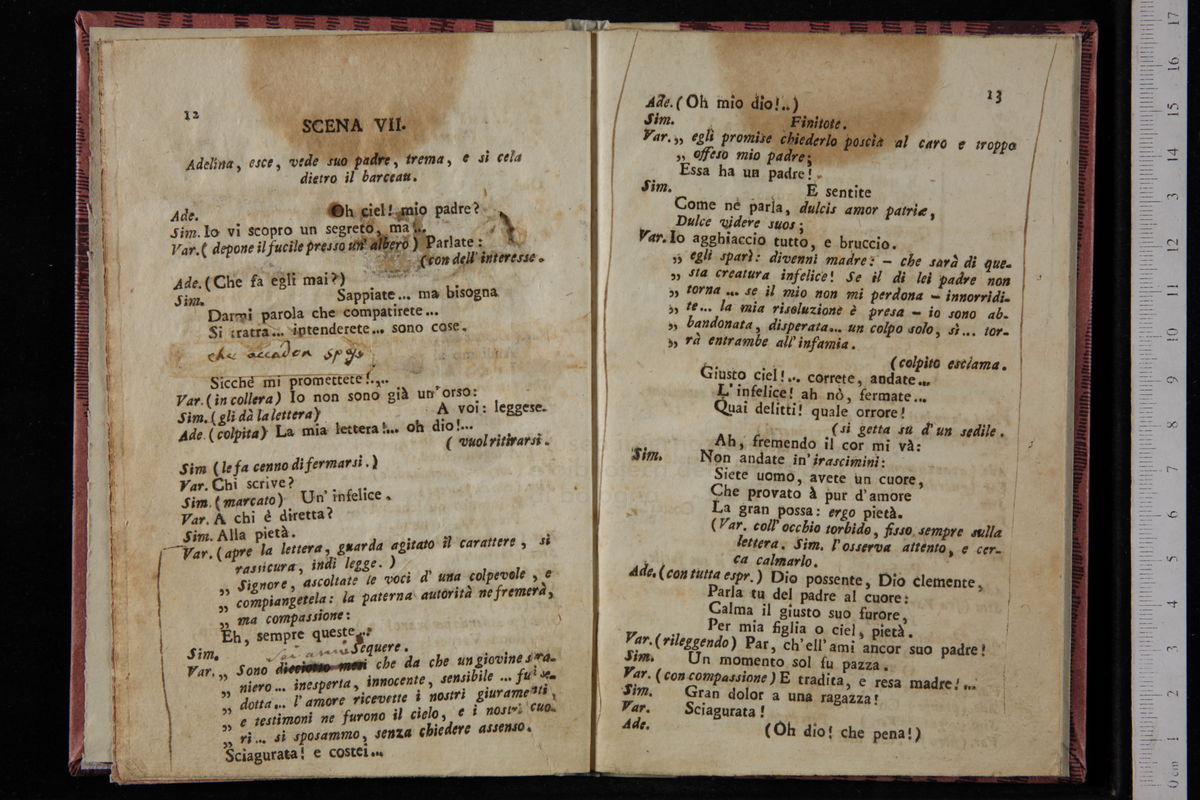 12
SCENA VII.
Adelina, esce, vede suo padre, trema, e si cela
dietro il barceau.
Ade. Oh ciel! mio padre?
Sim. Io vi scopro un segreto, ma...
Var. ( depone il fucile presso un' albero ) Parlate:
(con dell' interesse.
Ade. (Che fa egli mai?)
Sim. Sappiate... ma bisogna
Darmi parola che compatirete...
Si tratta... intenderete... sono cose.
che accadon spesso
Sicchè mi promettete!...
Var. (in collera) Io non sono già un' orso:
Sim. (gli dà la lettera) A voi: leggese.
Ade. (colpita) La mia lettera!... oh dio!...
( vuol ritirarsi.
Sim (le fa cenno di fermarsi.)
Var. Chi scrive?
Sim. (marcato) Un' infelice.
Var. A chi è diretta?
Sim. Alla pietà.
Var. (apre la lettera, guarda agitato il carattere, si
rassicura, indi legge. )
„ Signore, ascoltate le voci d' una colpevole, e
„ compiangetela: la paterna autorità ne fremerà,
„ ma compassione:
Eh, sempre queste...
Sim. Sequere.
Sei anni
Var. „ Sono dieciotto mesi che da che un giovine stra-
„ niero... inesperta, innocente, sensibile... fui se-
„ dotta... l' amore ricevette i nostri giuramenti,
„ e testimoni ne furono il cielo, e i nostri cuo-
„ ri... si sposammo, senza chiedere assenso.
Sciagurata! e costei...
13
Ade. (Oh mio dio!..)
Sim. Finitote.
Var. „ egli promise chiederlo poscia al caro e troppo
„ offeso mio padre;
Essa ha un padre!
Sim. E sentite
Come ne parla, dulcis amor patriæ,
Dulce videre suos;
Var. Io agghiaccio tutto, e bruccio.
„ egli sparì: divenni madre: – che sarà di que-
„ sta creatura infelice! Se il di lei padre non
„ torna ... se il mio non mi perdona – innorridi-
„ te... la mia risoluzione è presa – io sono ab-
„ bandonata, disperata... un colpo solo, sì... tor-
„ rà entrambe all' infamia.
(colpito esclama.
Giusto ciel!... correte, andate...
L' infelice! ah nò, fermate...
Quai delitti! quale orrore!
(si getta su d' un sedile.
Ah, fremendo il cor mi và:
Sim. Non andate in' irascimini:
Siete uomo, avete un cuore,
Che provato à pur d' amore
La gran possa: ergo pietà.
(Var. coll' occhio torbido, fisso sempre sulla
lettera. Sim. l' osserva attento, e cer-
ca calmarlo.
Ade. (con tutta espr.) Dio possente, Dio clemente,
Parla tu del padre al cuore:
Calma il giusto suo furore,
Per mia figlia o ciel, pietà.
Var. (rileggendo) Par, ch'ell' ami ancor suo padre!
Sim. Un momento sol fu pazza.
Var. (con compassione) E tradita, e resa madre!...
Sim. Gran dolor a una ragazza!
Var. Sciagurata!
Ade. (Oh dio! che pena!)
0 cm 1 2 3 4 5 6 7 8 9 10 11 12 13 14 15 16 17